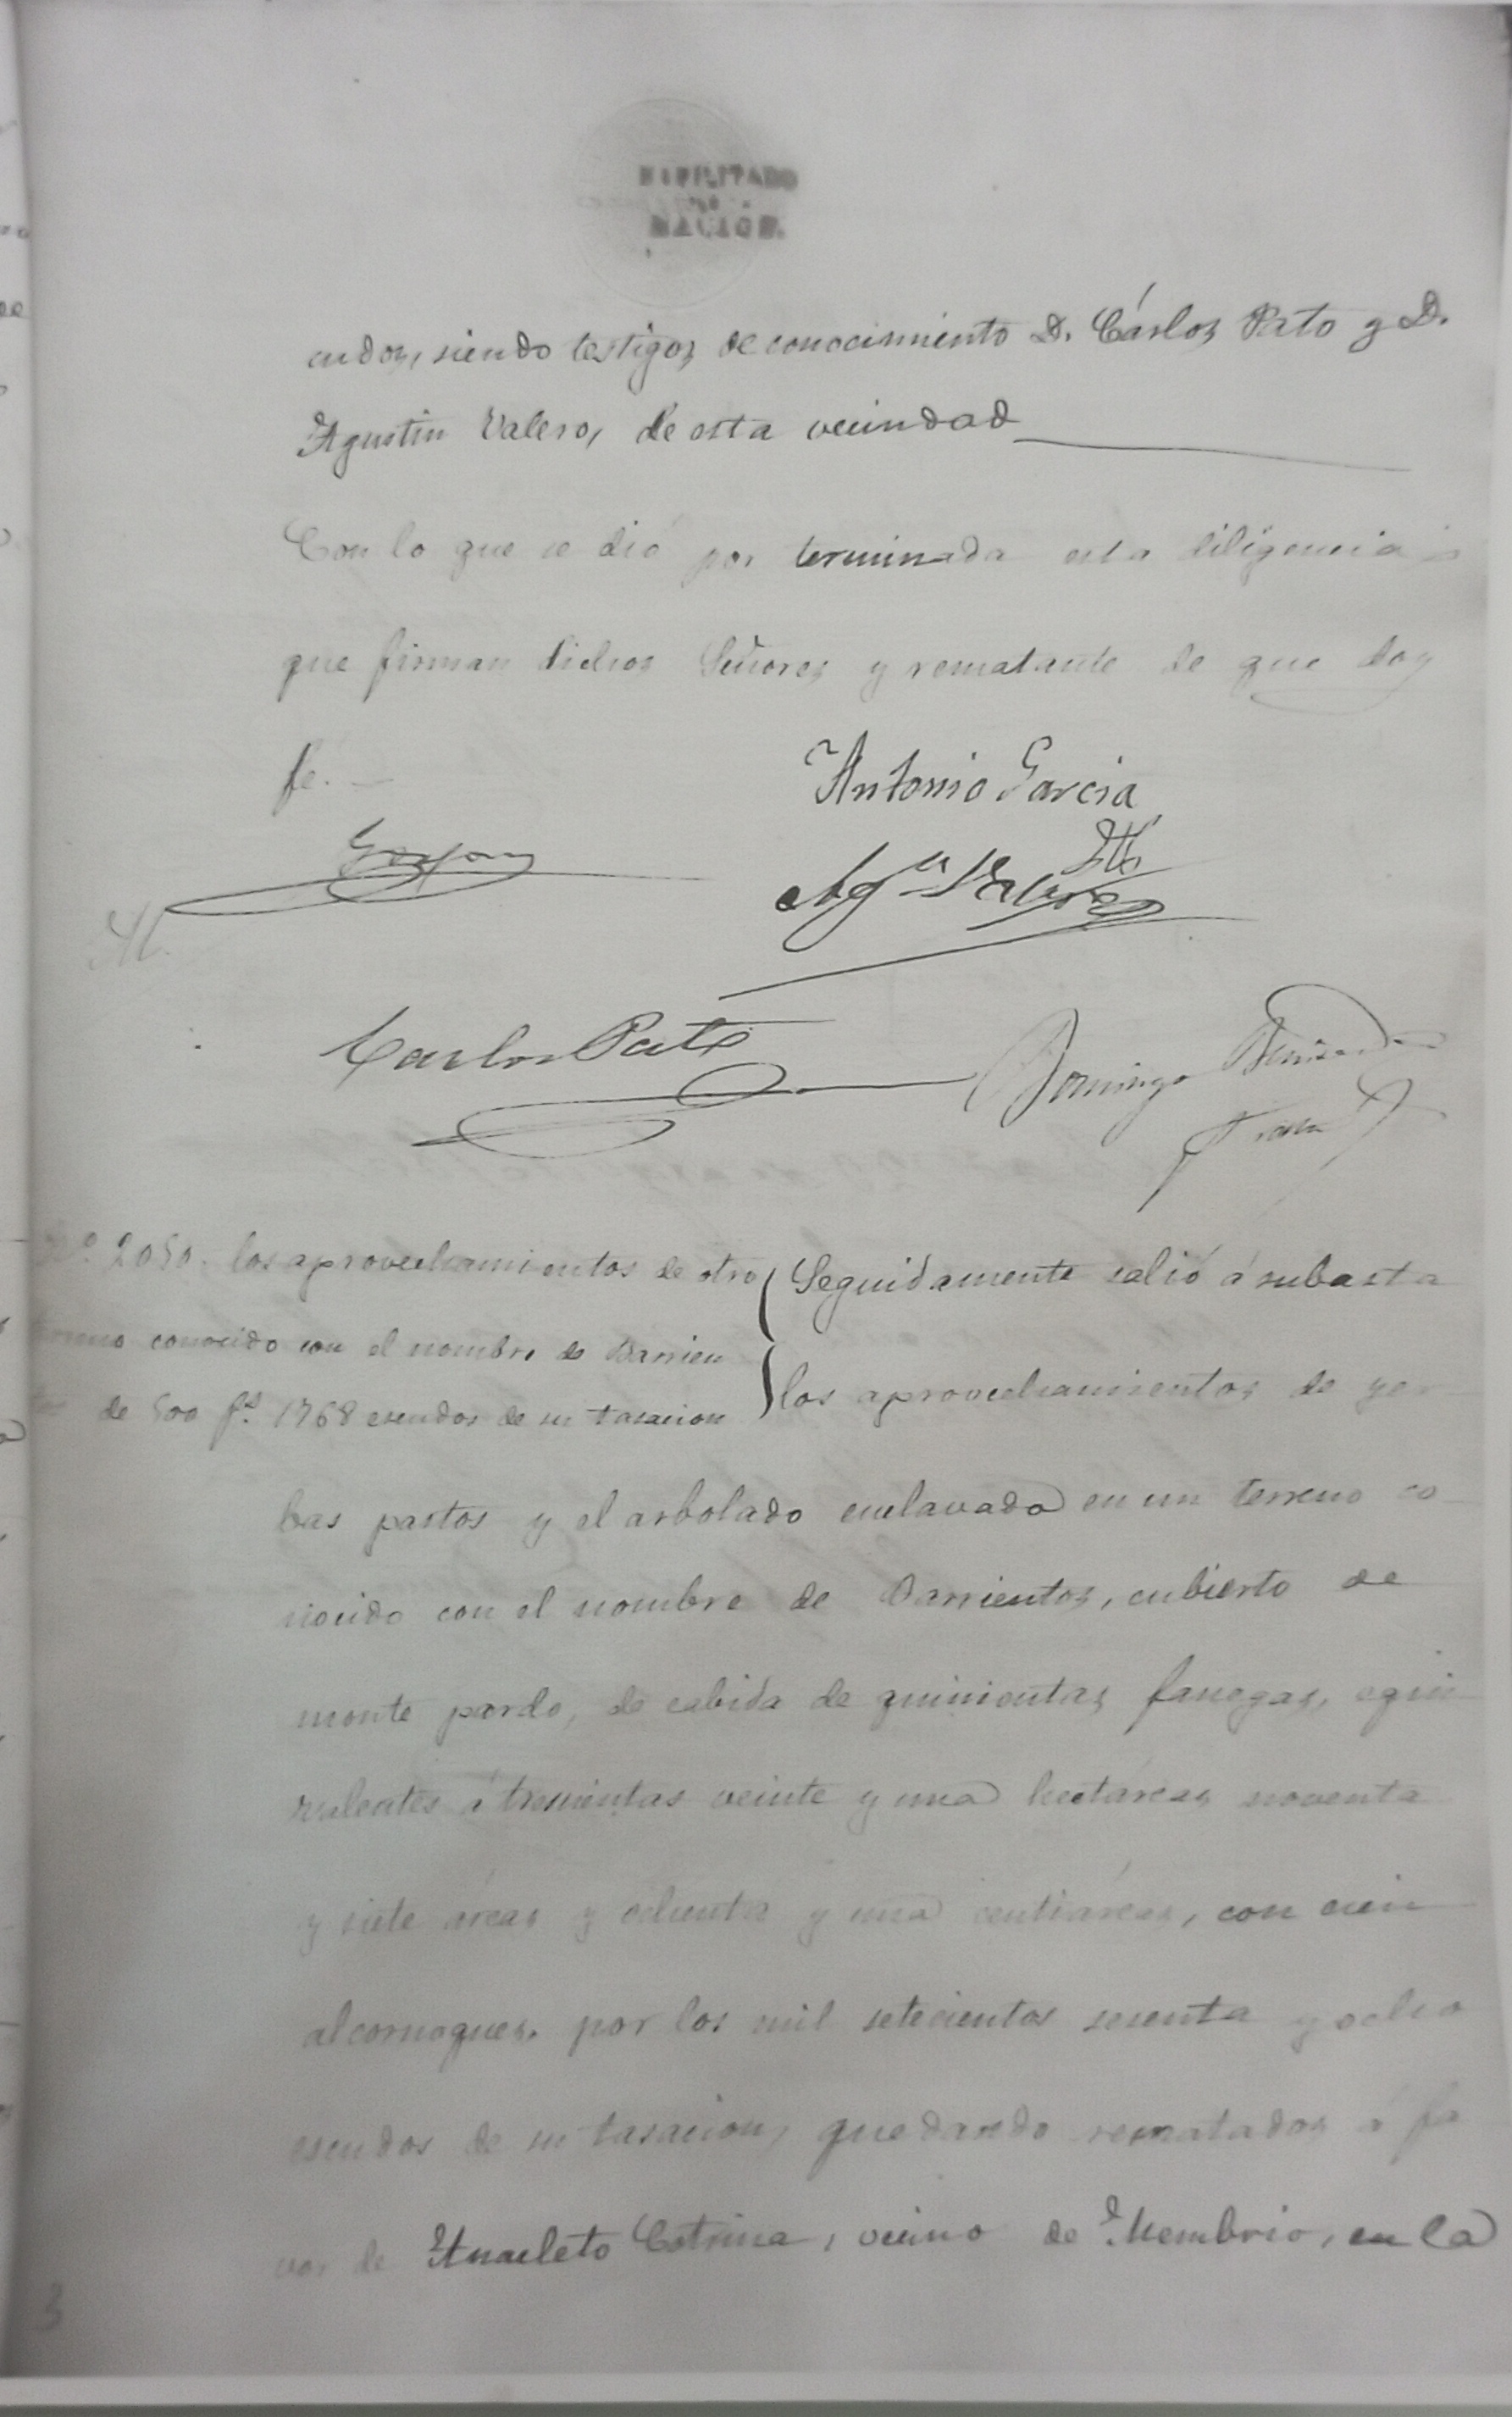 HABILITADO
POR LA
NACION.
cudos, siendo testigos de conocimiento D. Cárlos Pato y D.
Agustin Valero, de esta vecindad
Con lo que se dió por terminada esta diligencia
que firman dichos Señores y rematante de que doy
fe.
Antonio Garcia
Agn Valero
Carlos Pato
Domingo
2050. los aprovechamientos de otro
terreno conocido con el nombre de Barrien
tos de 500 fs. 1768 escudos de su tasacion
Seguidamente salió á subasta
los aprovechamientos de yer
bas pastos y el arbolado enclavado en un terreno co
nocido con el nombre de Barrientos, cubierto de
monte pardo, de cabida de quinientas fanegas, equi
valentes á trescientas veinte y una hectáreas noventa
y siete áreas y ochenta y una centiáreas, con cien
alcornoques, por los mil setecientos sesenta y ocho
escudos de su tasacion, quedando rematados á fa
vor de Anacleto Cotrina, vecino de Membrio, en la